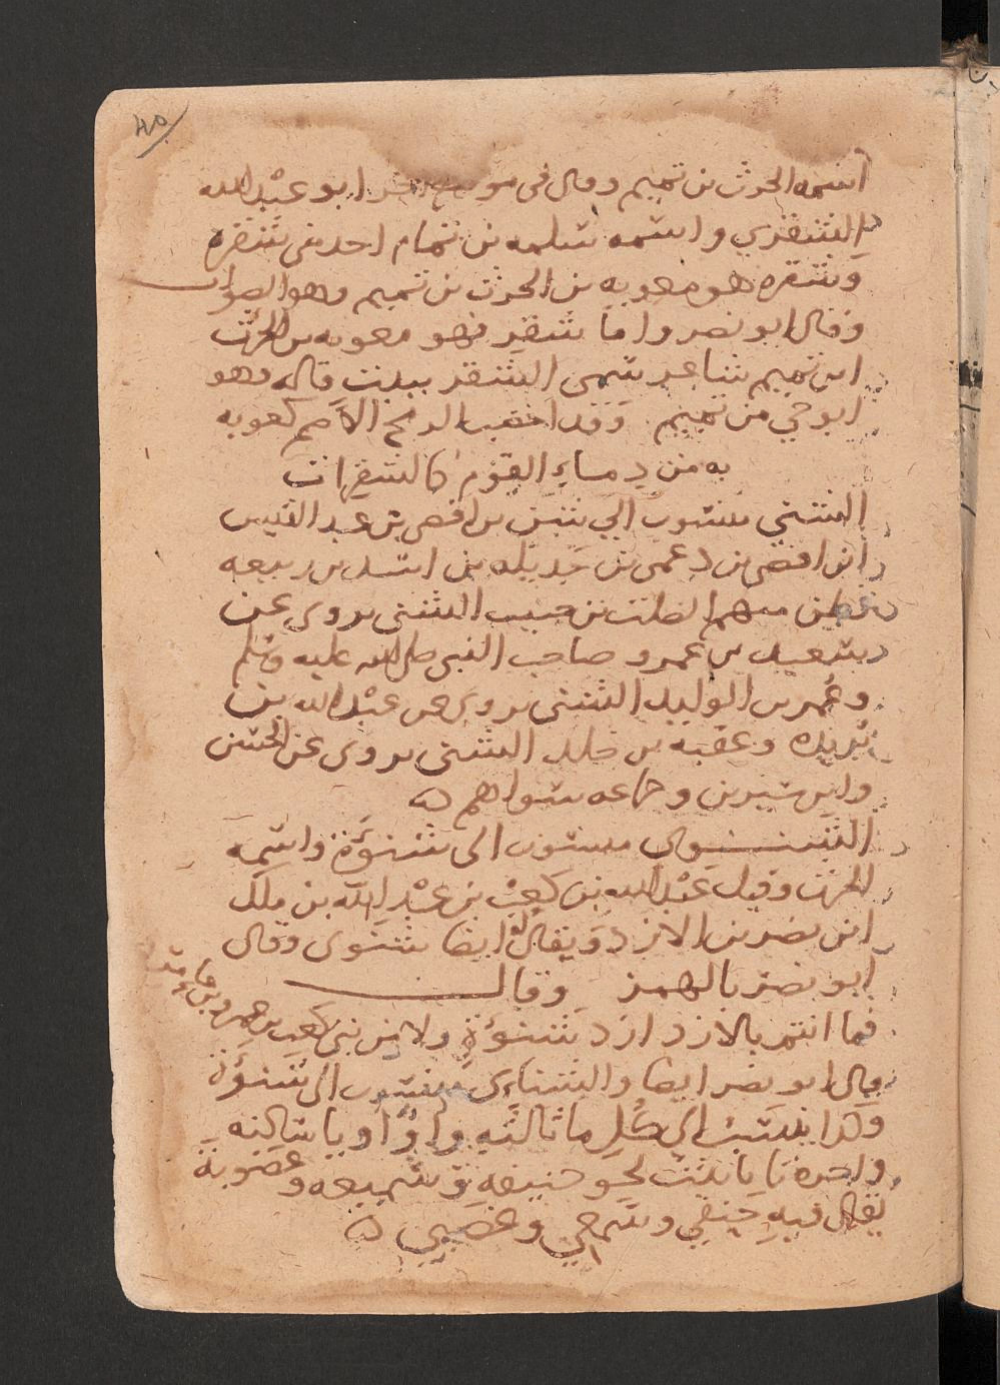 ٤٥
اسمه الحرث بن تميم وقال في موضع اخر ابو عبد الله
الشقري واسمه سلمه بن تمام احد بني شقره
وشقره هو معويه بن الحرث بن تميم وهو الصواب
وقال ابو نصر واما شقر فهو معويه بن الحرث
ابن تميم شاعر سمى الشقر ببيت قاله وهو
ابو حي من تميم وقد اخضب الرمح الاصم كعوبه
به من دماء القوم كالشقرات
الشني منسوب الي شن بن افصى بن عبد القيس
ابن افصى بن دعمي بن جديله بن اسد بن ربيعه
بطن منهم الصلت بن حبيب الشني يروى عن
سعيد بن عمرو صاحب النبي صلى الله عليه وسلم
وعمر بن الوليد الشني يروى عن عبد الله بن
بريده وعقبه بن خلد الشني يروى عن الحسن
وابن سيرين وجماعه سواهم ه
الشنوى منسوب الى شنوءة واسمه
الحرث وقيل عبد الله بن كعب بن عبد الله بن ملك
ابن نصر بن الازد ويقال له ايضا شنوى وقال
ابو نصر بالهمز وقال
فما انتم بالازد ازد شنوءة ولا من بني كعب بن عمرو بن عامر
قال ابو نصر ايضا والشناءى منسوب الى شنوءة
وكذا ينسب الى كل ما ثالثه واوا او يا ساكنه
واحده تا تانيث نحو حنيفه وسميعه وعضوبة
يقال فيه حنفي وسمعي وعضبي ه